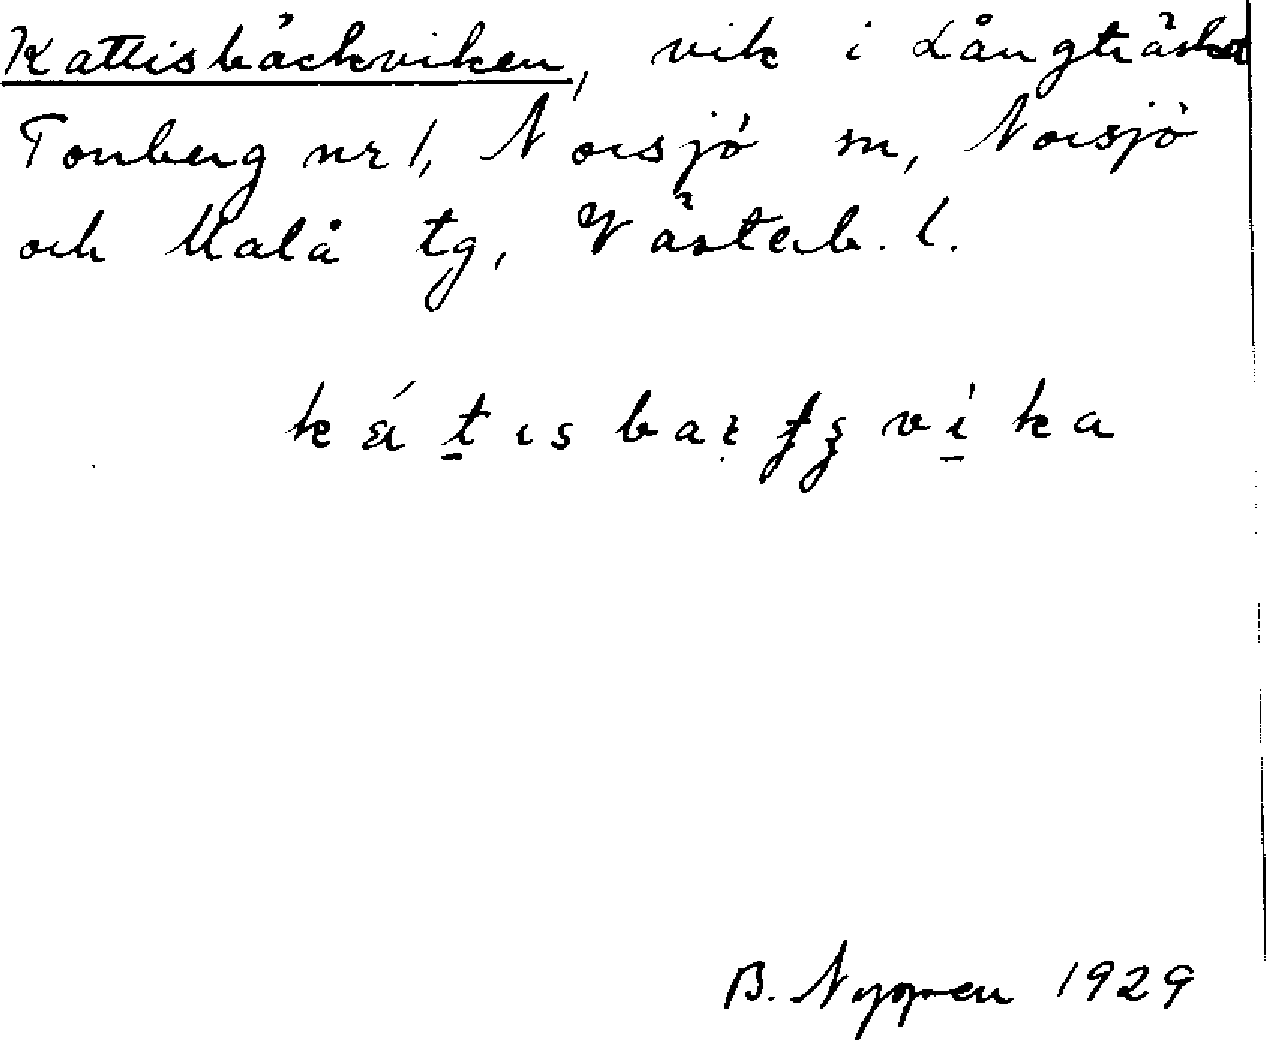 Kattisbäckviken, vik i Långträsket
Tonberg nr 1, Norsjö sn, Norsjö
och Malå tg, Västerb. l.
B. Nyppen 1929